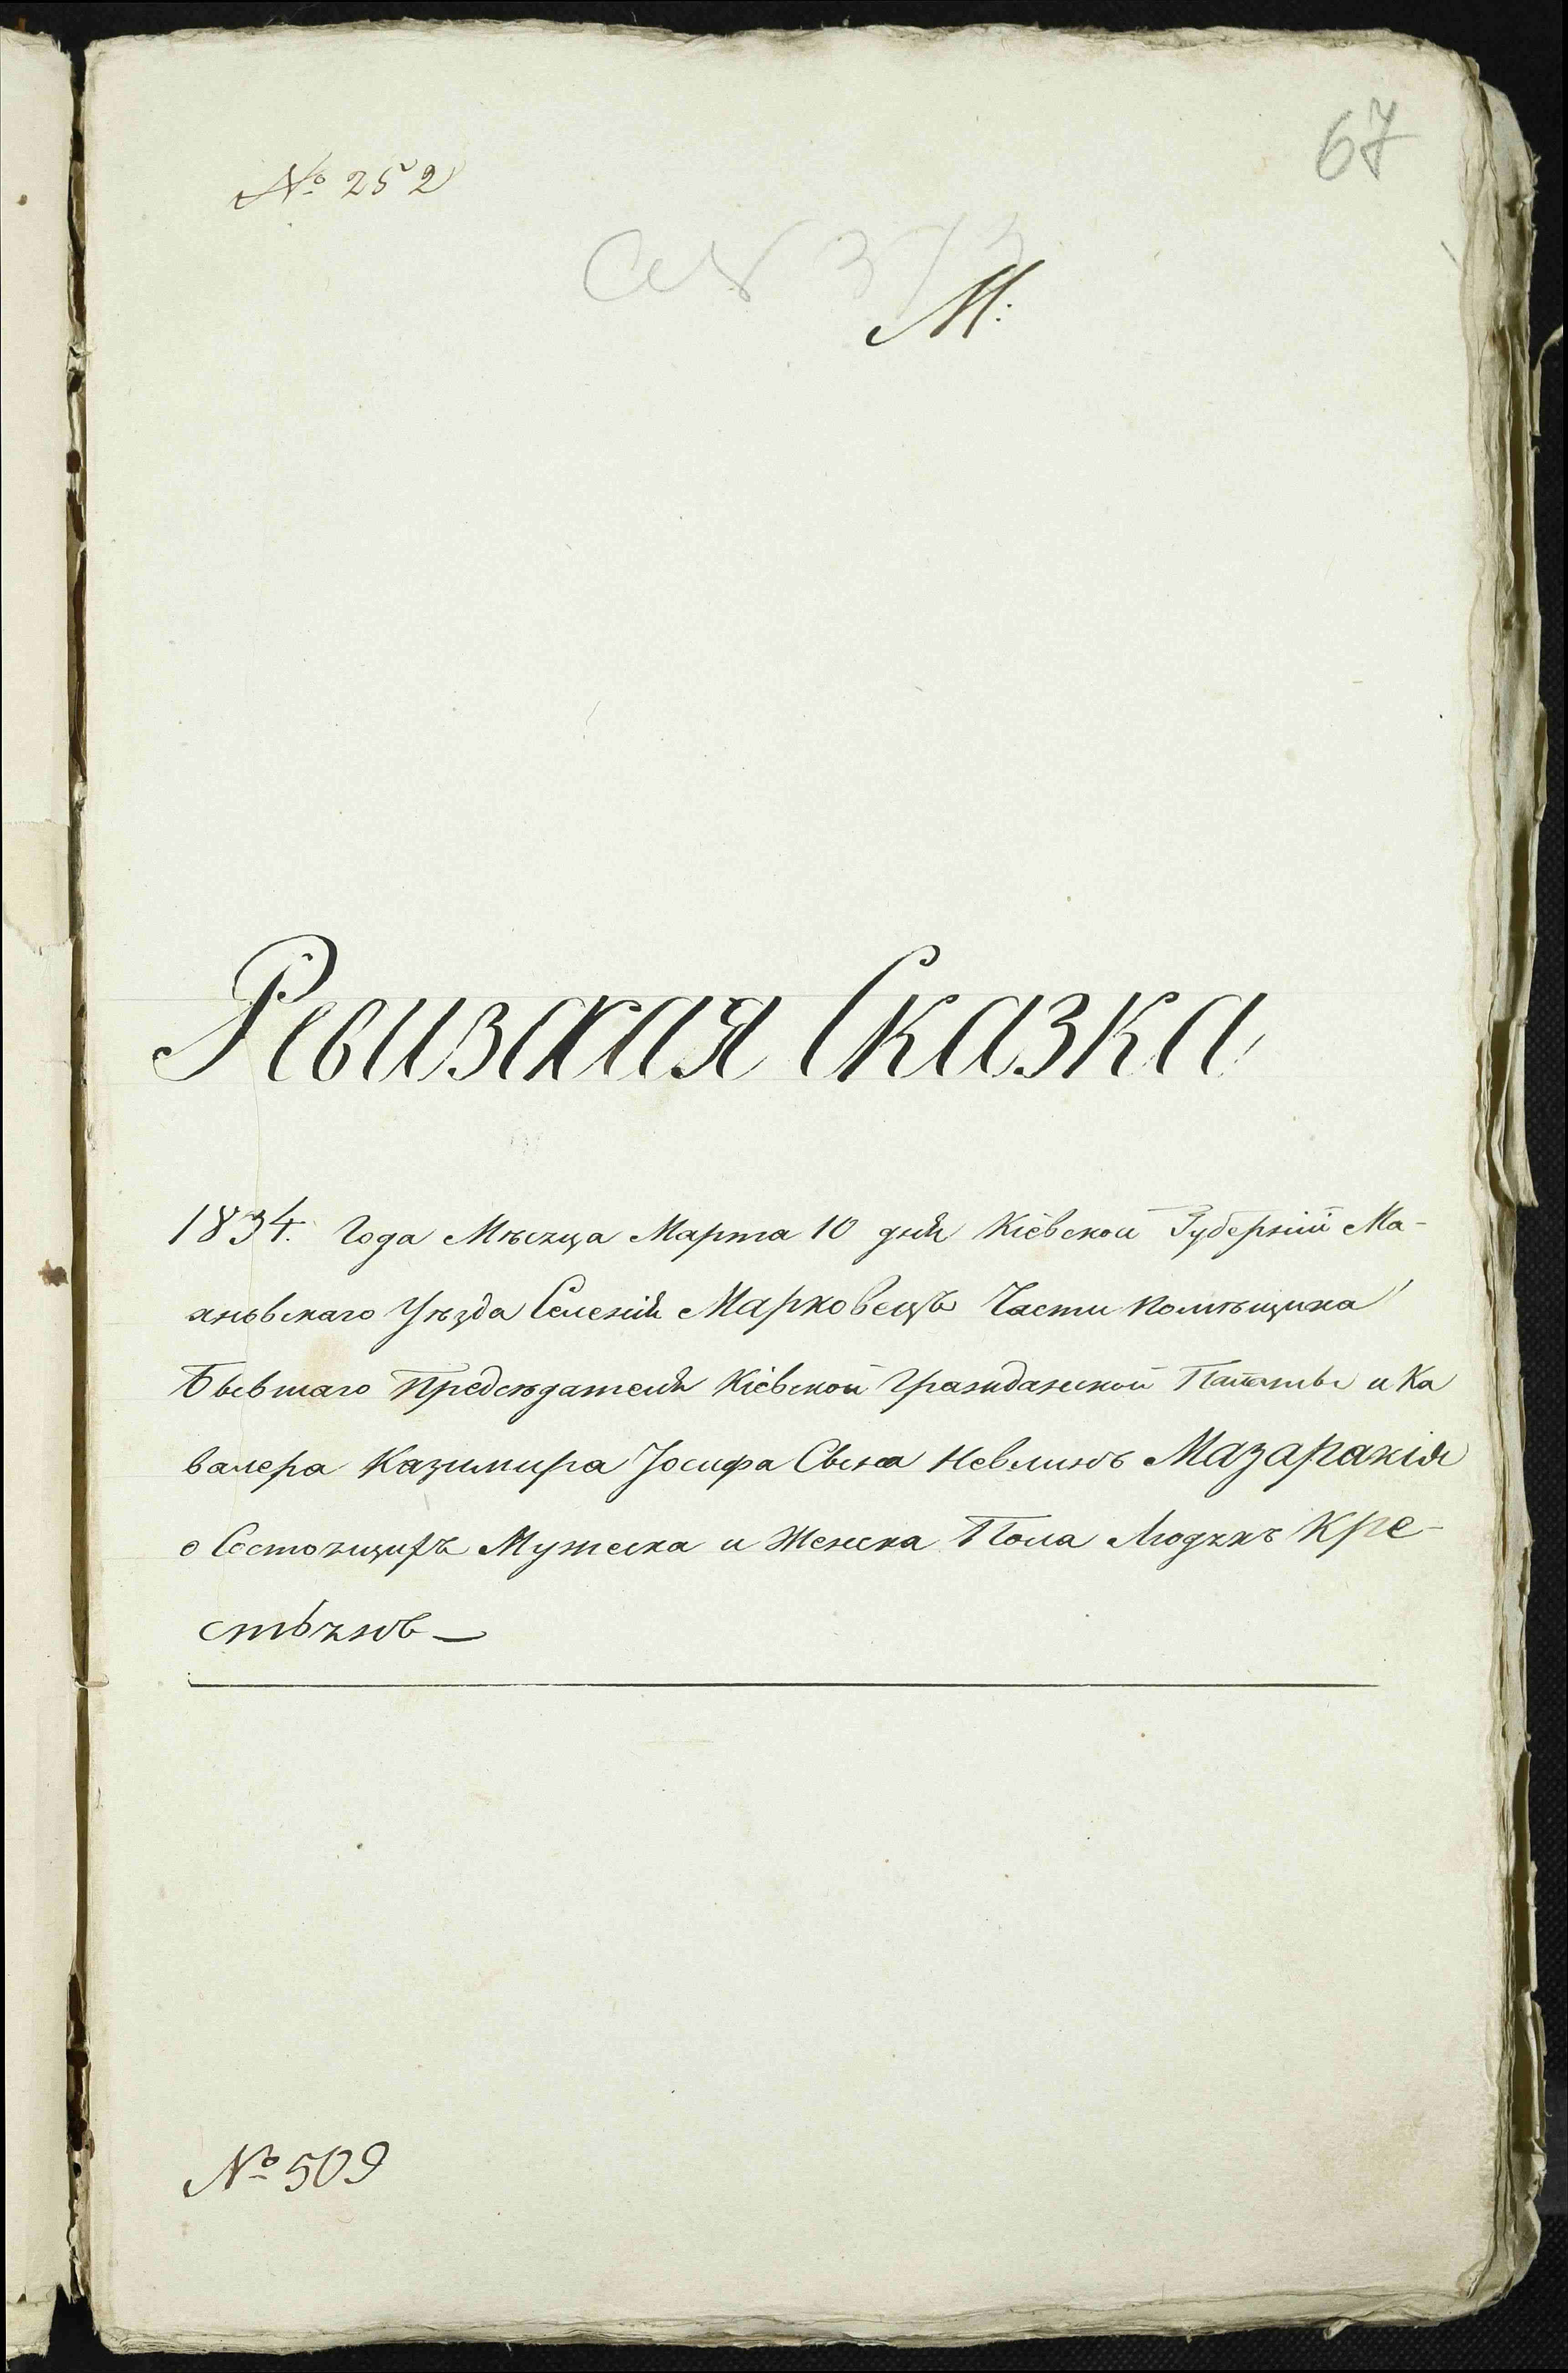 67
№ 252
М:
Ревизская Сказка
1834. Года Мѣсяца Марта 10 дня Кіевской Губерніи Ма-
хновскаго Уѣзда Селенія Марковецъ Части Помѣщика
Бывшаго Предсѣдателя Кіевской Гражданской Палаты и Ка
валера Казимира Іосифа Сына Мазаракія
о Состоящихъ Мужеска и Женска Пола Людяхъ Кре-
стьянъ —
№ 509